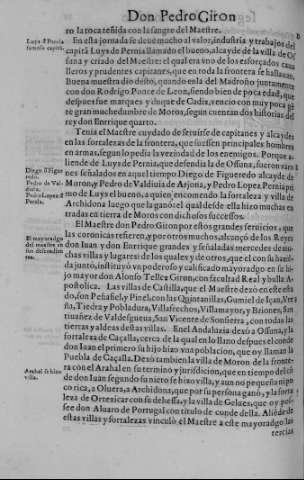 Don Pedro Giron
ro la toca teñida con la sangre del Maestre.
En esta jornada se deue mucho al valor, industria y trabajos del
capitã Luys de Pernia llamado el bueno, alcayde de la villa de Os
suna y criado del Maestre: el qual era vno de los esforçados caua
lleros y prudentes capitanes, que en toda la frontera se hallauan.
Buena muestra dio desto, quando en la del Madroño juntamente
con don Rodrigo Ponce de Leon, siendo bien de poca edad, que
despues fue marques y duque de Cadiz, vencio con muy poca gẽ
te gran muchedumbre de Moros, segun cuentan dos historias del
rey don Enrrique quarto.
Tenia el Maestre cuydado de seruirse de capitanes y alcaydes
en las fortalezas de la frontera, que fuessen principales hombres
en armas, segun lo pedia la vezindad de los enemigos. Porque a-
liende de Luys de Pernia, que defendia la de Ossuna, fueron varo
nes señalados en aquel tiempo Diego de Figueredo alcayde de
Moron, y Pedro de Valdiuia de Arjona, y Pedro Lopez Pernia pri
mo de Luys el bueno, a quien, encomendo la fortaleza y villa de
Archidona luego que la ganó: el qual desde ella hizo muchas en
tradas en tierra de Moros con dichosos successos.
El Maestre don Pedro Giron por estos grandes seruicios, que
las coronicas refieren, y por otros muchos, alcançó de los Reyes
don Iuan y don Enrrique grandes y señaladas mercedes de mu-
chas villas y lugares: de los quales y de otros, que el con su hazié
da juntó, instituyó vn poderoso y calificado mayoradgo en su hi
jo mayor don Alonso Tellez Giron, con facultad Real y bulla A-
postolica. Las villas de Castilla, que el Maestre dexó en este esta
do, son Peñafiel, y Pinel, con las Quintanillas, Gumiel de Içan, Vre
ña, Tiedra y Pobladura, Villafrechos, Villamayor, y Briones, San
tiuañez de Valdesgueua, San Vicente de Sonsierra, con todas las
tierras y aldeas destas villas. Enel Andaluzia dexó a Ossuna, y la
fortaleza de Caçalla, cerca de la qual en lo llano despues el conde
don Iuan el primero su hijo hizo vna poblacion, que oy llaman la
Puebla de Caçalla. Dexó tambien la villa de Moron de la fronte-
ra con el Arahal en su termino y jurisdicion, que en tiempo del cõ
de don Iuan segundo su nieto se hizo villa, y aun no pequeña ni po
co rica, a Oluera, a Archidona, que por su persona ganó, y la forta
leza de Ortexicar con su dehessa, y la villa de Gelues, que oy pos-
see don Aluaro de Portugal con titulo de conde della. Aliéde de
estas villas y fortalezas vinculó el Maestre a este mayoradgo las
tercias
Luys d' Pernia
famoso capitã.
Diego d' Figue
redo.
Pedro de Val-
diuia.
Pedro Lopez d'
Pernia.
El mayoradgo
del maestre en
sus descendien
tes.
Arahal se hizo
villa.